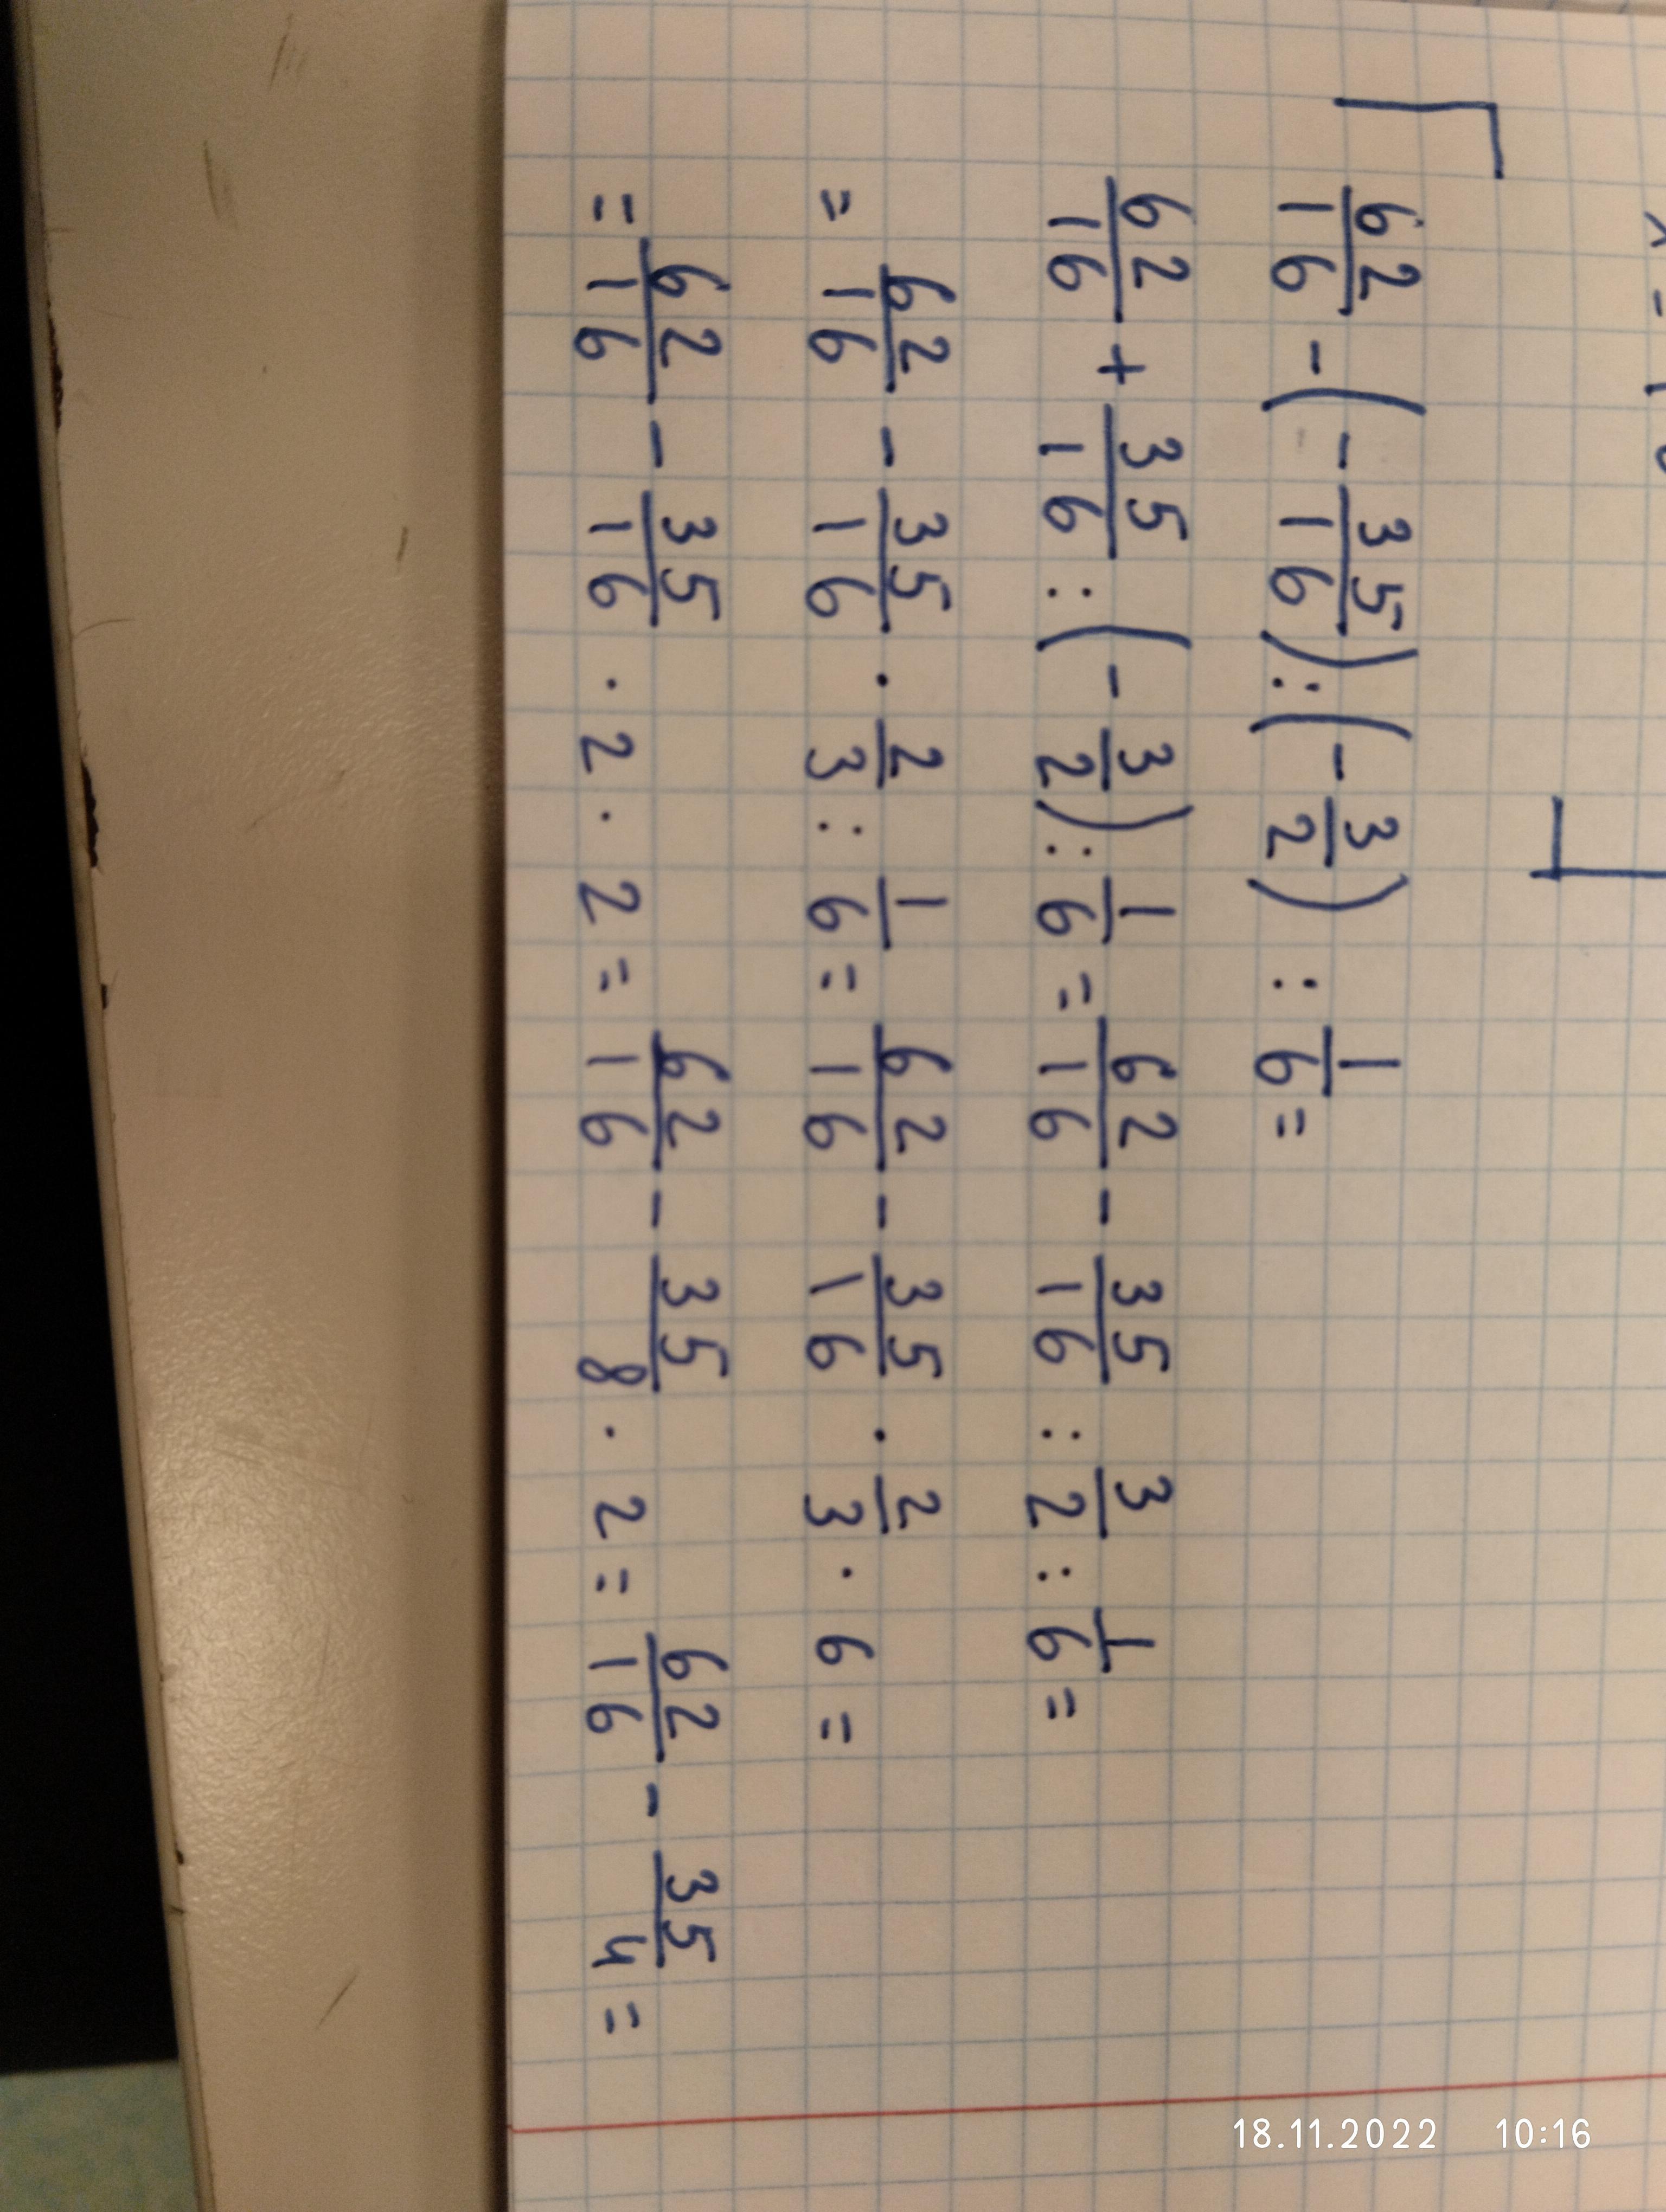 62/16 - (- 35/16) : (- 3/2) : 1/6 =
62/16 + 35/16 : (- 3/2) : 1/6 = 62/16 - 35/16 : 3/2 : 1/6 =
= 62/16 - 35/16 · 2/3 : 1/6 = 62/16 - 35/16 · 2/3 · 6 =
= 62/16 - 35/16 · 2 · 2 = 62/16 - 35/8 · 2 = 62/16 - 35/4 =
18.11.2022 10:16